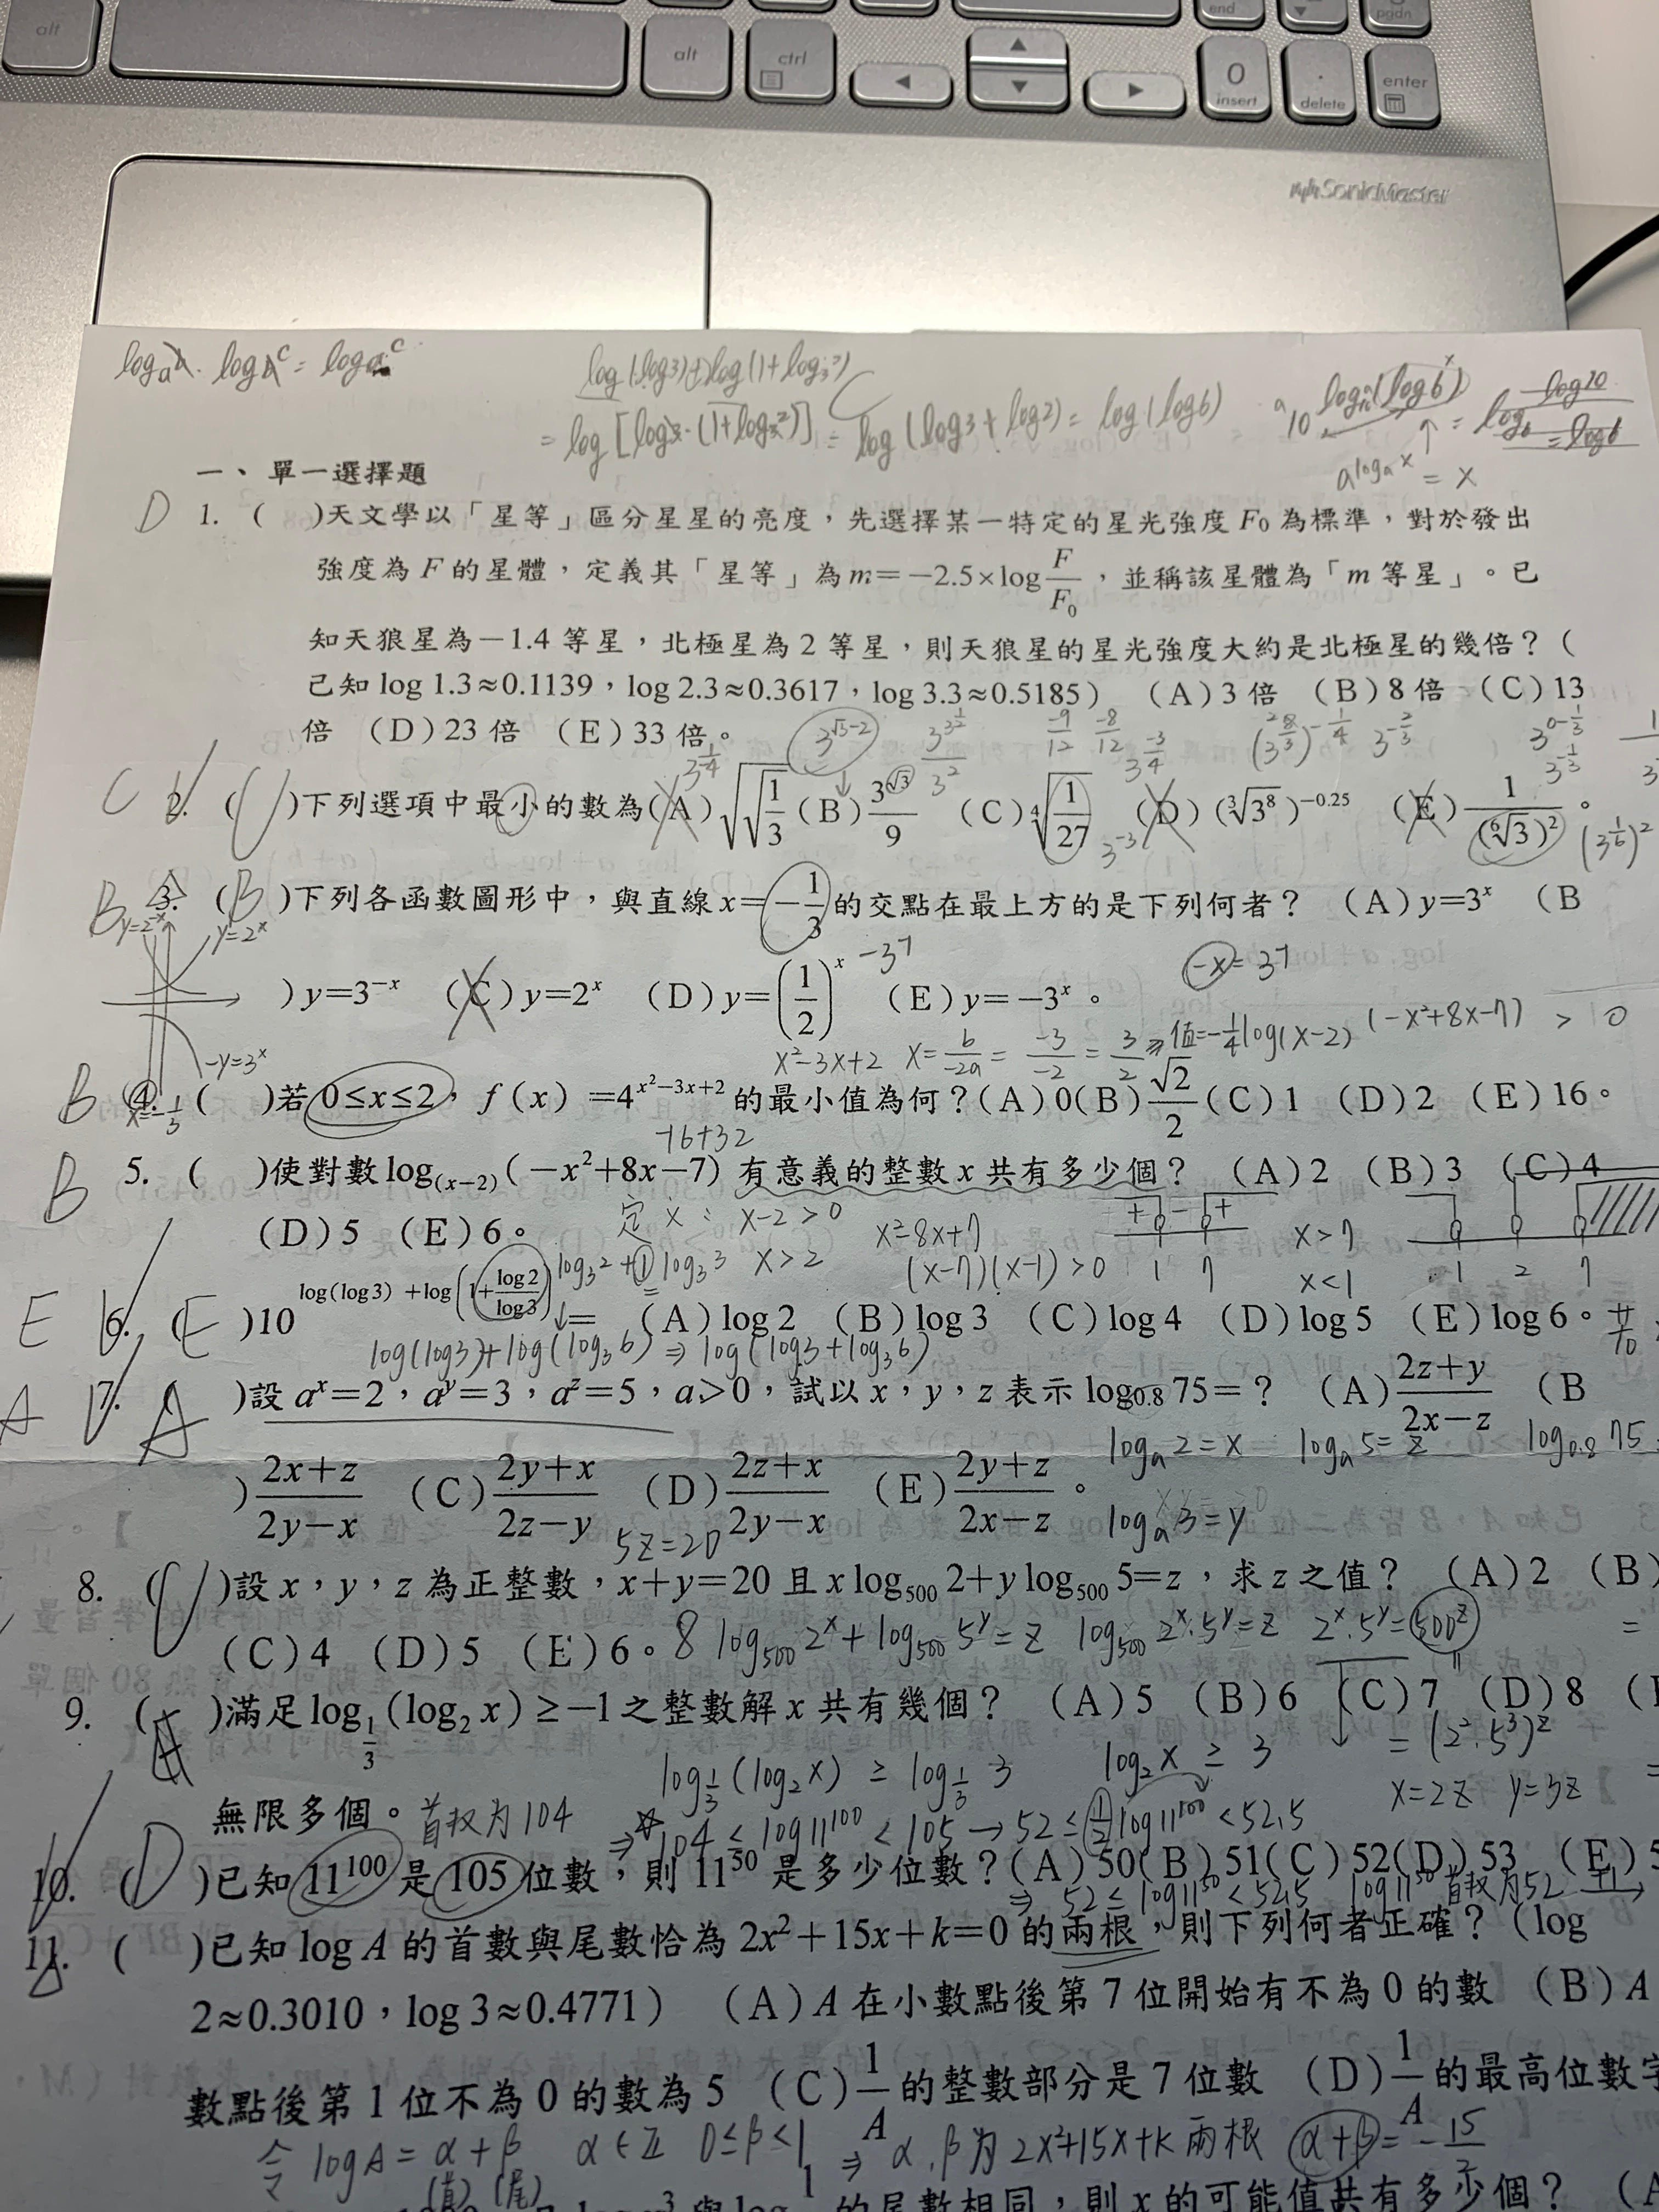 alt
alt
ctrl
end
pgdn
0
insert
.
delete
enter
SonicMaster
log(log3)+log(1+log₃2)
= log(log3+log2) = log(log6)
a^(logₐx) = x
一、單一選擇題
D 1. ( )天文學以「星等」區分星星的亮度，先選擇某一特定的星光強度 F₀ 為標準，對於發出
強度為 F 的星體，定義其「星等」為 m=−2.5×log F/F₀，並稱該星體為「m 等星」。已
知天狼星為−1.4 等星，北極星為 2 等星，則天狼星的星光強度大約是北極星的幾倍？（
已知 log 1.3≈0.1139，log 2.3≈0.3617，log 3.3≈0.5185） (A) 3 倍 (B) 8 倍 (C) 13
倍 (D) 23 倍 (E) 33 倍。
3^(√3−2)
C 2. ( )下列選項中最小的數為(A) √√(1/3) (B) 3^√3/9 (C) ⁴√(1/27) (D) (³√3⁸)^−0.25 (E) 1/(⁶√3)²。
(3^(1/6))²
B 3. (B)下列各函數圖形中，與直線 x=−1/3 的交點在最上方的是下列何者？ (A) y=3ˣ (B
y=2⁻ˣ y=2ˣ
) y=3⁻ˣ (C) y=2ˣ (D) y=(1/2)ˣ (E) y=−3ˣ。
−y=3ˣ
x²−3x+2 x= b/−2a = −3/−2 = 3/2 ⇒ 值=−1/4
log(x−2) (−x²+8x−7) > 0
B 4. ( )若 0≤x≤2，f(x) =4^(x²−3x+2) 的最小值為何？(A) 0(B) √2/2 (C) 1 (D) 2 (E) 16。
x=−1/3
−16+32
B 5. ( )使對數 log₍ₓ₋₂₎ (−x²+8x−7) 有意義的整數 x 共有多少個？ (A) 2 (B) 3 (C) 4
(D) 5 (E) 6。
x−2>0 x²−8x+7 + − + x>7
x>2 (x−7)(x−1)>0 1 7 x<1 1 2 7
log₃2+1 log₃3
E 6. (E)10^(log(log3)+log(1+log2/log3)) = (A) log 2 (B) log 3 (C) log 4 (D) log 5 (E) log 6。
log(log3)+log(log₃6) ⇒ log(log3+log₃6)
A 7. (A)設 aˣ=2，aʸ=3，aᶻ=5，a>0，試以 x，y，z 表示 log₀.₈ 75=？ (A) (2z+y)/(2x−z) (B
logₐ2=x logₐ5=z log₀.₈75
) (2x+z)/(2y−x) (C) (2y+x)/(2z−y) (D) (2z+x)/(2y−x) (E) (2y+z)/(2x−z)。
logₐ3=y
5z=20
8. ( )設 x，y，z 為正整數，x+y=20 且 x log₅₀₀ 2+y log₅₀₀ 5=z，求 z 之值？ (A) 2 (B)
(C) 4 (D) 5 (E) 6。
log₅₀₀2ˣ+log₅₀₀5ʸ=z log₅₀₀2ˣ·5ʸ=z 2ˣ·5ʸ=500ᶻ
9. ( )滿足 log₁/₃ (log₂ x) ≥−1 之整數解 x 共有幾個？ (A) 5 (B) 6 (C) 7 (D) 8 (
=(2²·5³)ᶻ
log₁/₃(log₂x) ≥ log₁/₃ 3 log₂x ≥ 3
x=2z y=3z
無限多個。
首权为104 ⇒ 104 ≤ log11¹⁰⁰ < 105 → 52 ≤ 1/2 log11¹⁰⁰ < 52.5
10. (D)已知 11¹⁰⁰ 是 105 位數，則 11⁵⁰ 是多少位數？(A) 50(B) 51(C) 52(D) 53 (E) 5
⇒ 52 ≤ log11⁵⁰ < 52.5 log11⁵⁰首权为52 +1
11. ( )已知 log A 的首數與尾數恰為 2x²+15x+k=0 的兩根，則下列何者正確？（log
2≈0.3010，log 3≈0.4771） (A) A 在小數點後第 7 位開始有不為 0 的數 (B) A
數點後第 1 位不為 0 的數為 5 (C) 1/A 的整數部分是 7 位數 (D) 1/A 的最高位數字
令 logA=α+β α∈Z 0≤β<1 ⇒ α,β为 2x²+15x+k 兩根 α+β=−15/2
(首) (尾)
的尾數相同，則 x 的可能值共有多少個？ (A